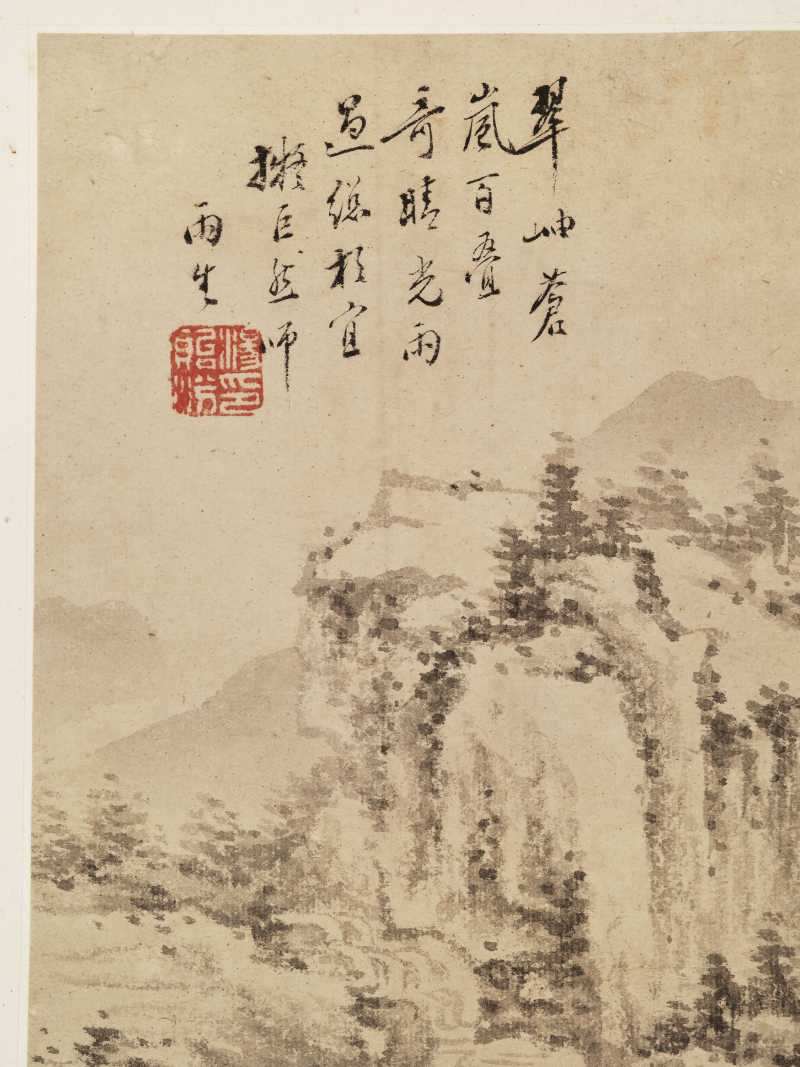 翠岫蒼
嵐百疊
奇晴光雨
過總相宜
擬巨然師
雨生
湯印
貽汾